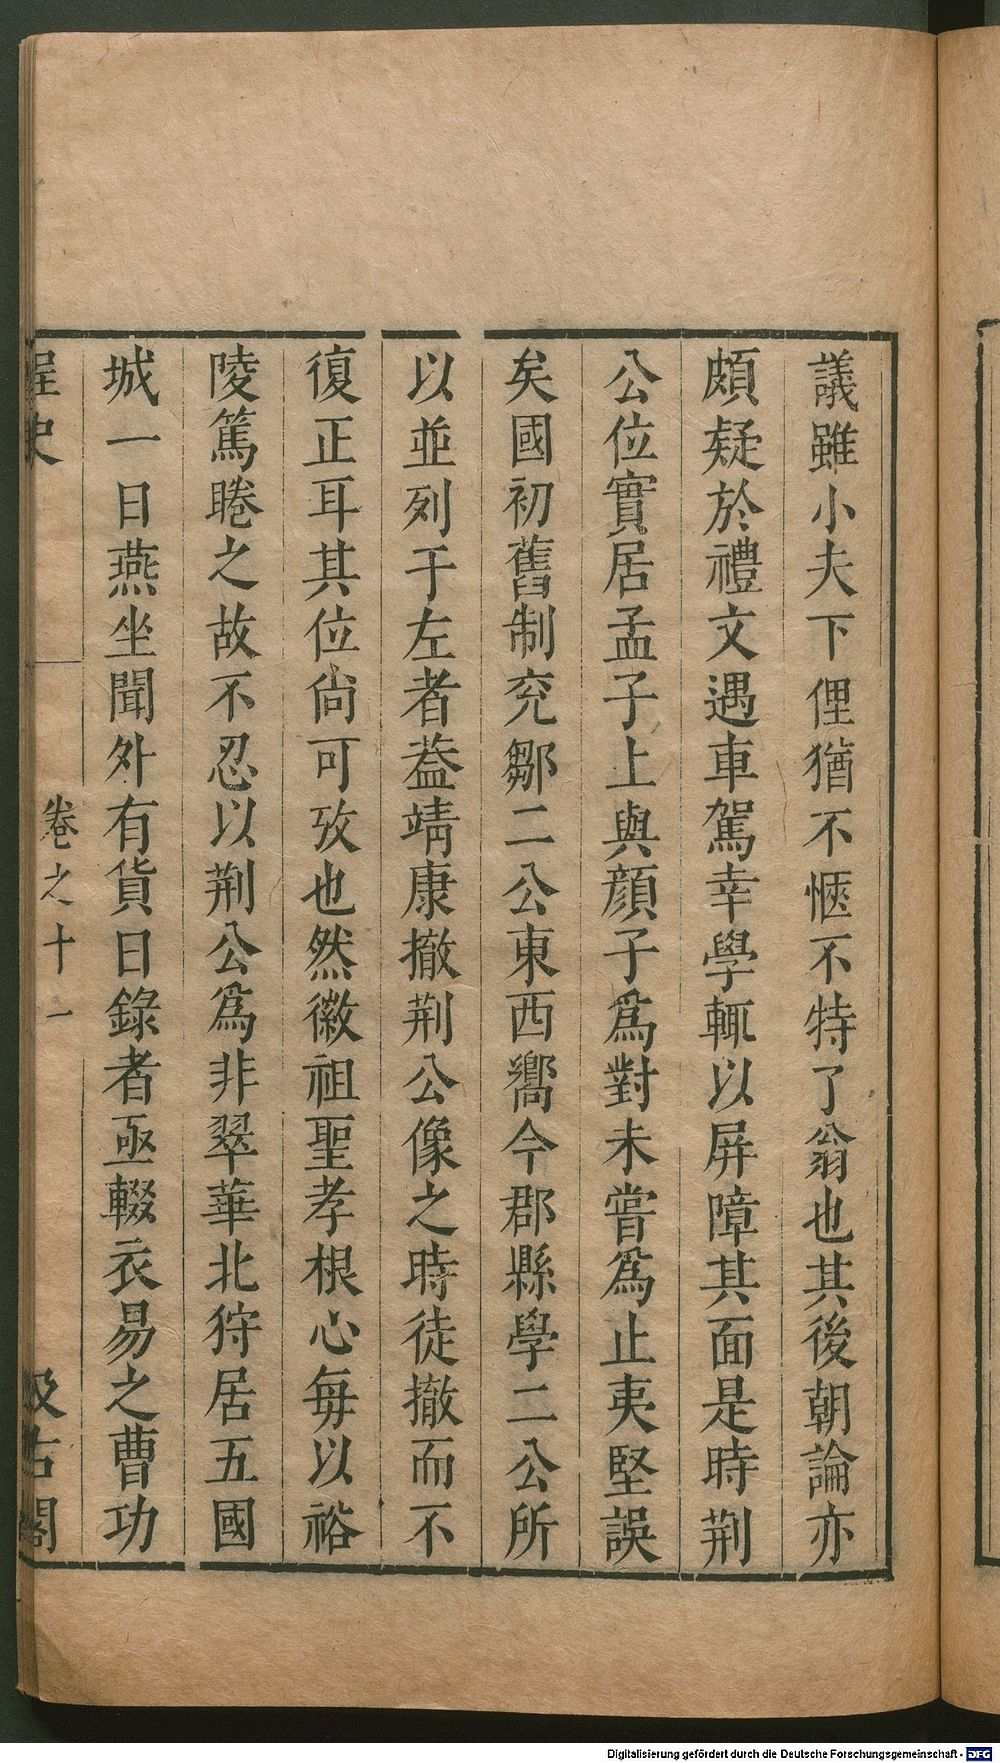 議雖小夫下俚猶不愜不特了翁也其後朝論亦
頗疑於禮文遇車駕幸學輒以屏障其面是時荆
公位實居孟子上與顔子爲對未嘗爲止夷堅誤
矣國初舊制兖鄒二公東西嚮今郡縣學二公所
以並列于左者葢靖康撤荆公像之時徒撤而不
復正耳其位尙可攷也然徽祖聖孝根心每以裕
陵篤睠之故不忍以荆公爲非翠華北狩居五國
城一日燕坐聞外有貨日錄者亟輟衣易之曹功
桯史
卷之十一
汲古閣
Digitalisierung gefördert durch die Deutsche Forschungsgemeinschaft - DFG